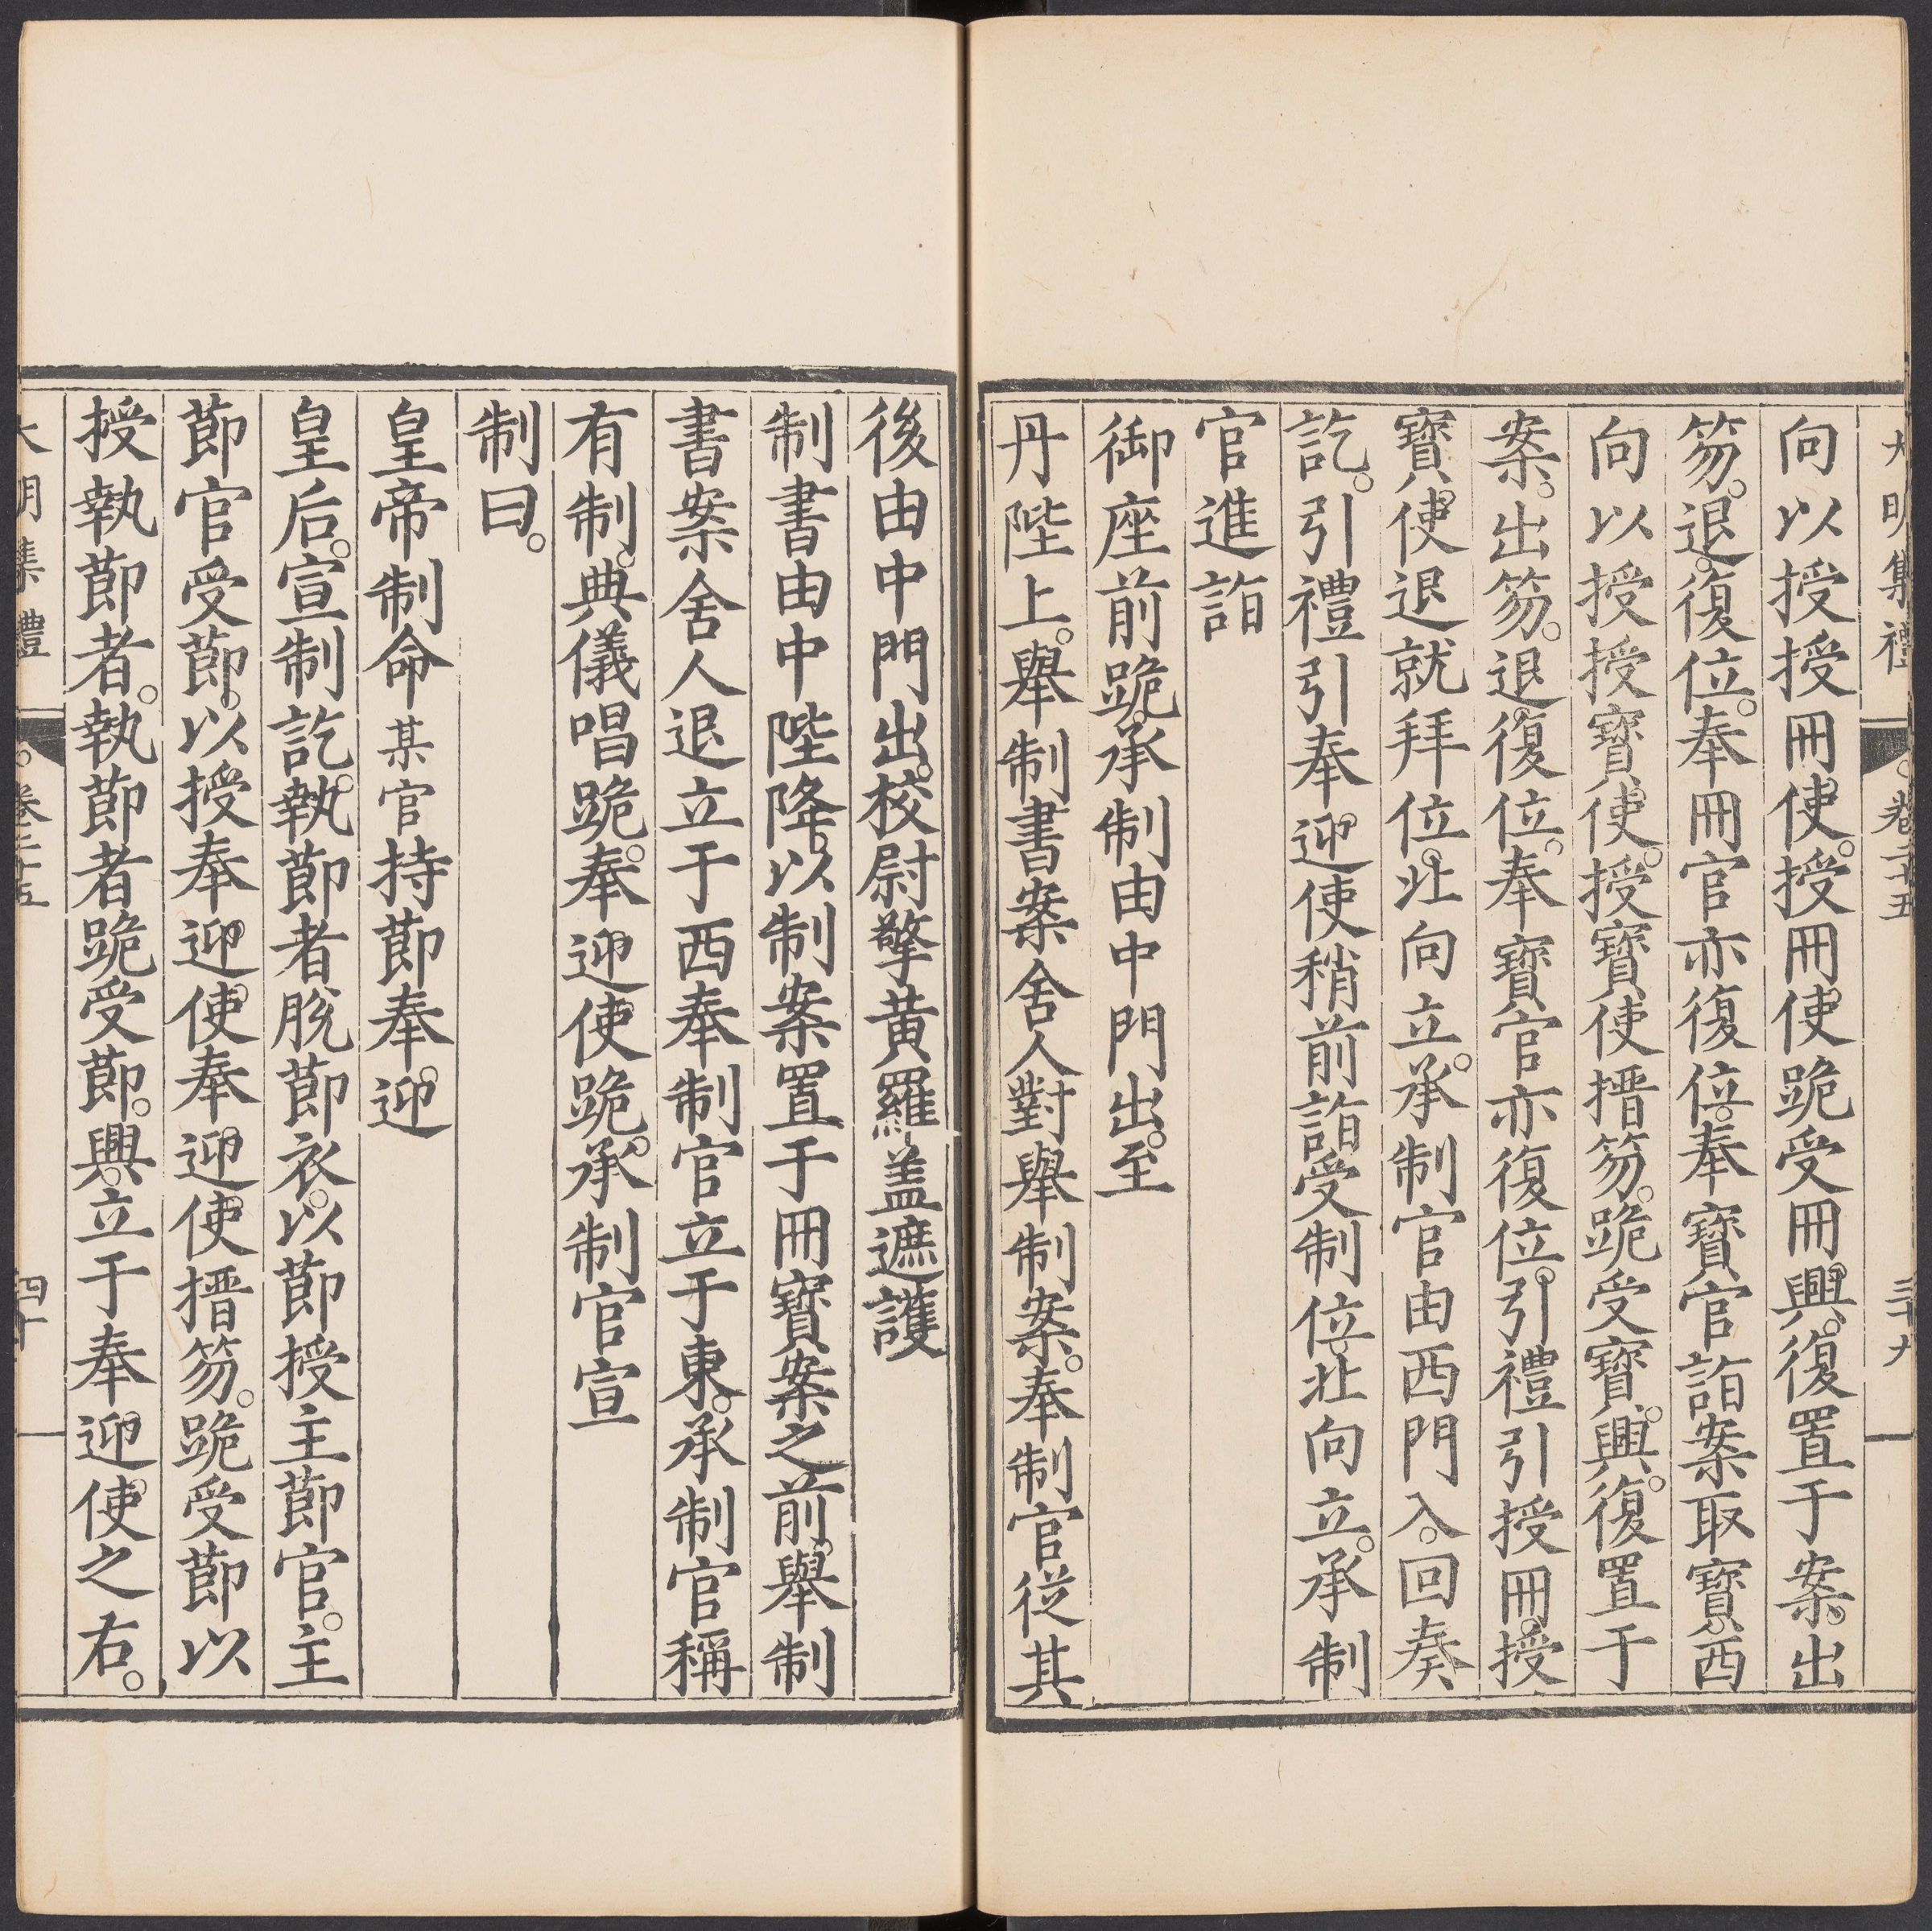 大明集禮
卷二十五
三十九
向以授授冊使。授冊使跪受冊。興。復置于案。出
笏。退。復位。奉冊官亦復位。奉寶官詣案取寶。西
向以授授寶使。授寶使搢笏。跪受寶。興。復置于
案。出笏。退。復位。奉寶官亦復位。引禮引授冊。授
寶。使退就拜位。北向立。承制官由西門入。回奏
訖。引禮引奉迎使稍前詣受制位。北向立。承制
官進詣
御座前跪。承制由中門出。至
丹陛上。舉制書案舍人對舉制案。奉制官從其
後由中門出。校尉擎黃羅盖遮護
制書由中陛降。以制案置于冊寶案之前。舉制
書案舍人退立于西奉制官立于東。承制官稱
有制。典儀唱跪。奉迎使跪。承制官宣
制曰。
皇帝制命某官持節奉迎
皇后。宣制訖。執節者脫節衣。以節授主節官。主
節官受節。以授奉迎使。奉迎使搢笏。跪受節以
授執節者。執節者跪受節。興。立于奉迎使之右。
大明集禮
卷二十五
四十